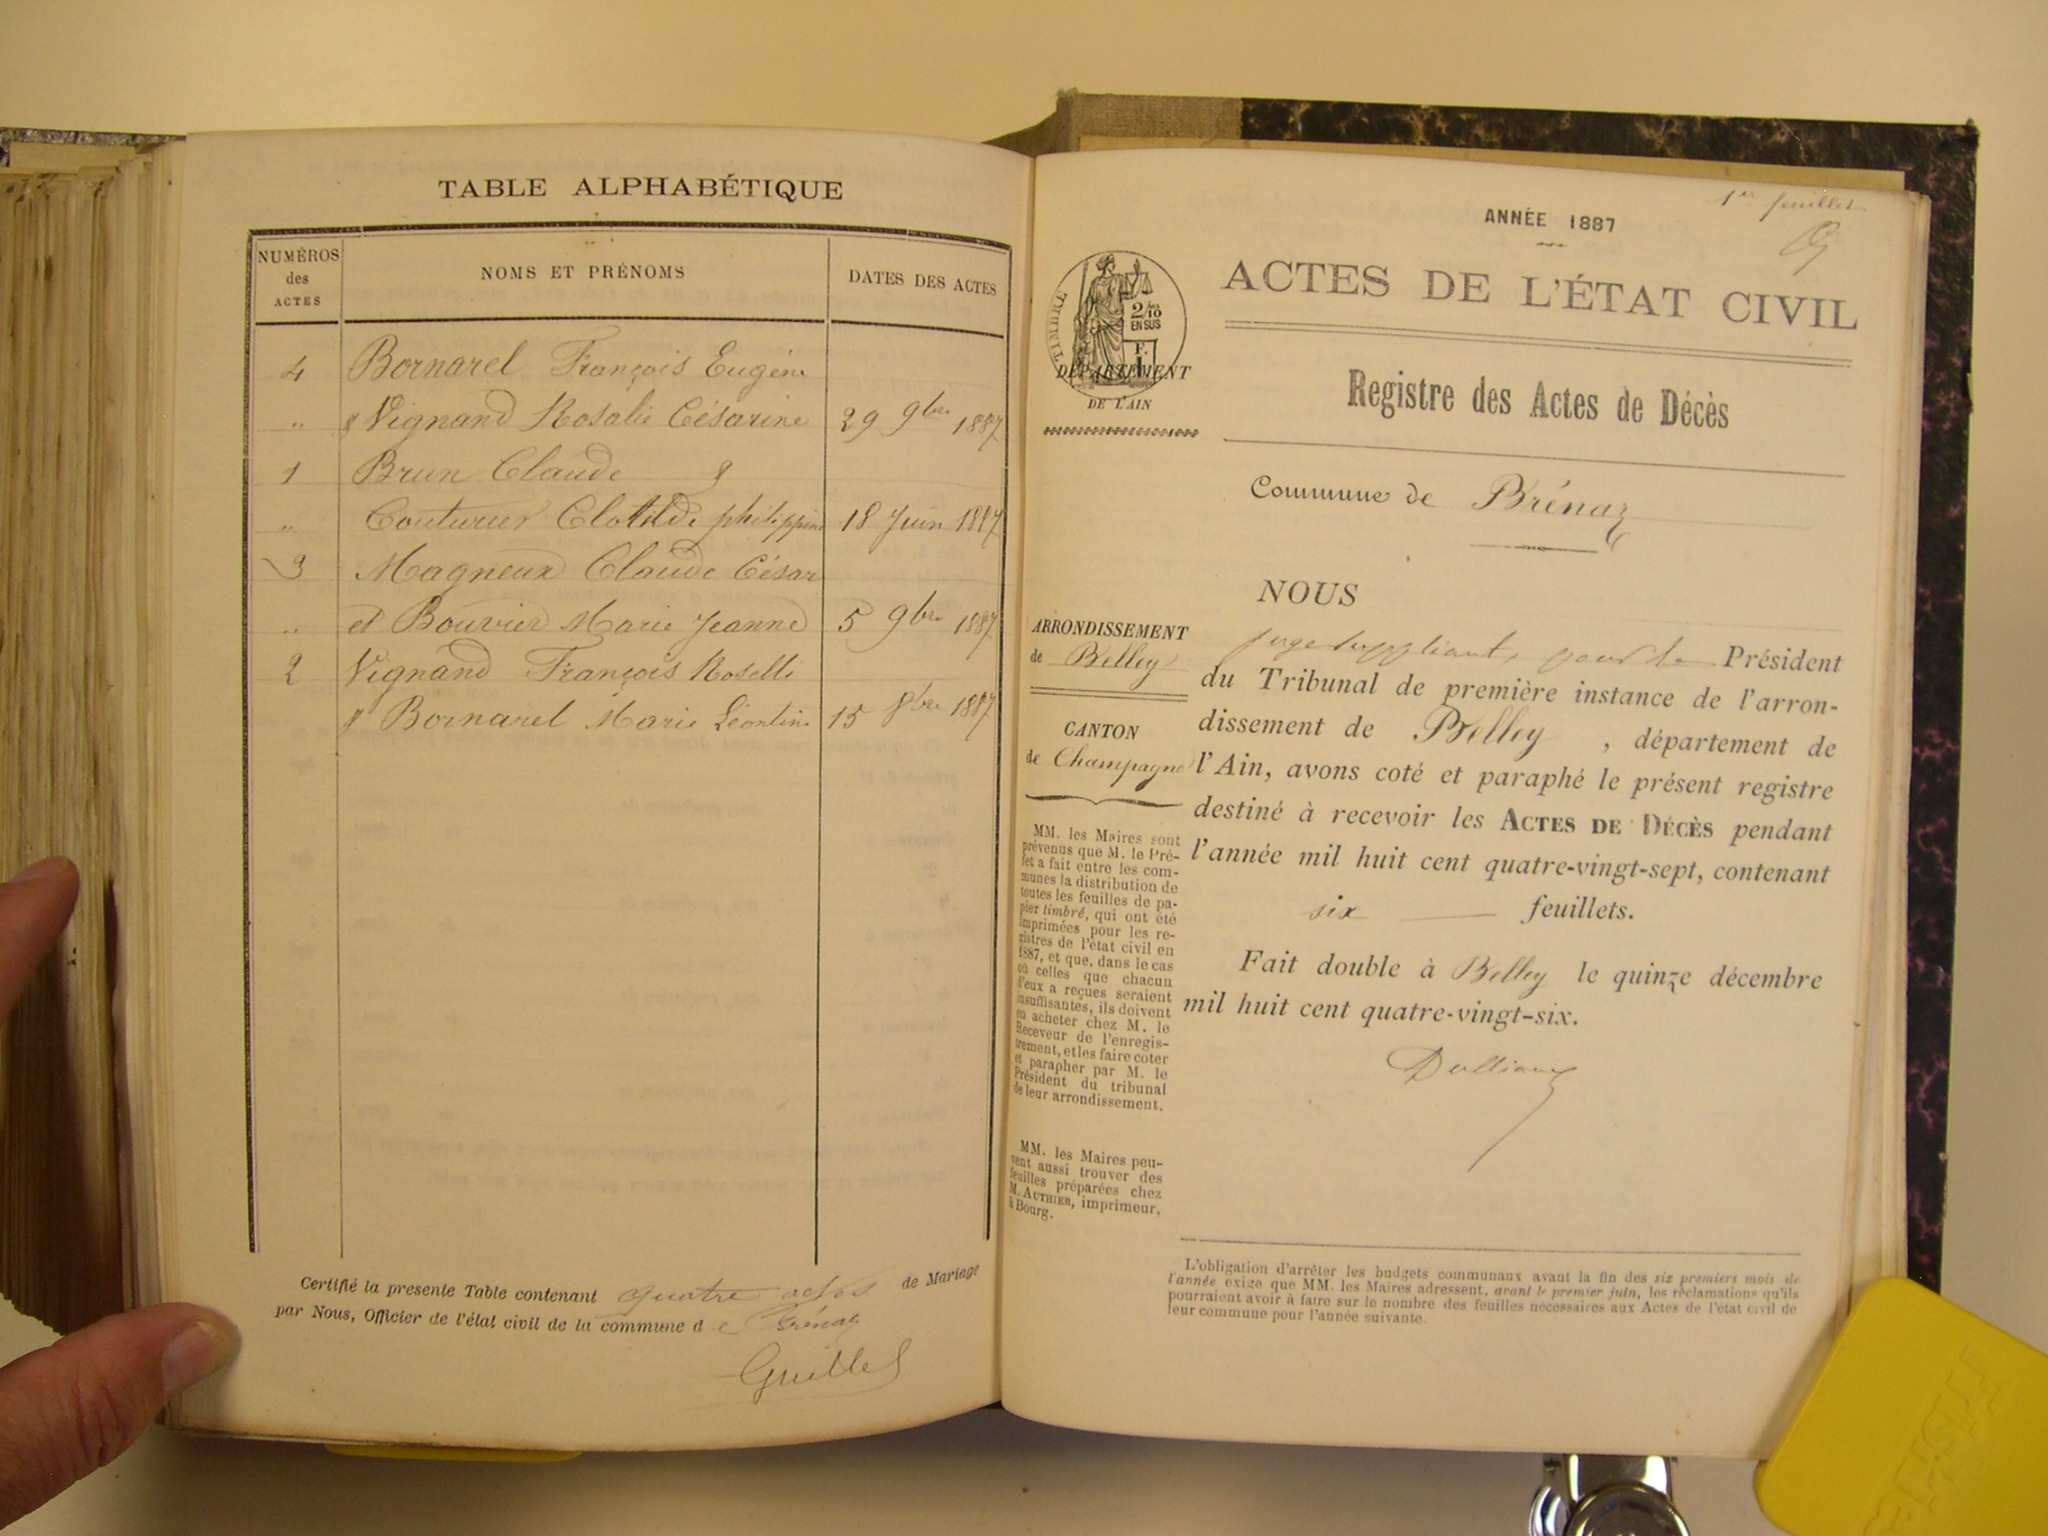 TABLE ALPHABÉTIQUE
NUMÉROS des ACTES
NOMS ET PRÉNOMS
DATES DES ACTES
4 Bornarel François Eugène
" & Vignand Rosalie Césarine 29 9bre 1887
1 Brun Claude &
" Couturier Clotilde philippine 18 Juin 1887
3 Magneux Claude César
" et Bouvier Marie Jeanne 5 9bre 1887
2 Vignand François Roselli
& Bornarel Marie Léontine 15 8bre 1887
Certifié la presente Table contenant quatre actes de Mariage
par Nous, Officier de l'état civil de la commune d e Brénaz
Guillet
1er feuillet
ANNÉE 1887
TIMBRE
2/10
EN SUS
F.
1
DÉPARTEMENT
DE L'AIN
ACTES DE L'ÉTAT CIVIL
Registre des Actes de Décès
Commune de Brénaz
ARRONDISSEMENT
de Belley
CANTON
de Champagne
MM. les Maires sont
prévenus que M. le Pré-
fet a fait entre les com-
munes la distribution de
toutes les feuilles de pa-
pier timbré, qui ont été
imprimées pour les re-
gistres de l'état civil en
1887, et que, dans le cas
où celles que chacun
d'eux a reçues seraient
insuffisantes, ils doivent
en acheter chez M. le
Receveur de l'enregis-
trement, et les faire coter
et parapher par M. le
Président du tribunal
de leur arrondissement.
MM. les Maires peu-
vent aussi trouver des
feuilles préparées chez
M. AUTHIER, imprimeur,
à Bourg.
NOUS
juge suppléant, pour le Président
du Tribunal de première instance de l'arron-
dissement de Belley, département de
l'Ain, avons coté et paraphé le présent registre
destiné à recevoir les ACTES DE DÉCÈS pendant
l'année mil huit cent quatre-vingt-sept, contenant
six feuillets.
Fait double à Belley le quinze décembre
mil huit cent quatre-vingt-six.
L'obligation d'arrêter les budgets communaux avant la fin des six premiers mois de
l'année exige que MM. les Maires adressent, avant le premier juin, les réclamations qu'ils
pourraient avoir à faire sur le nombre des feuilles nécessaires aux Actes de l'état civil de
leur commune pour l'année suivante.